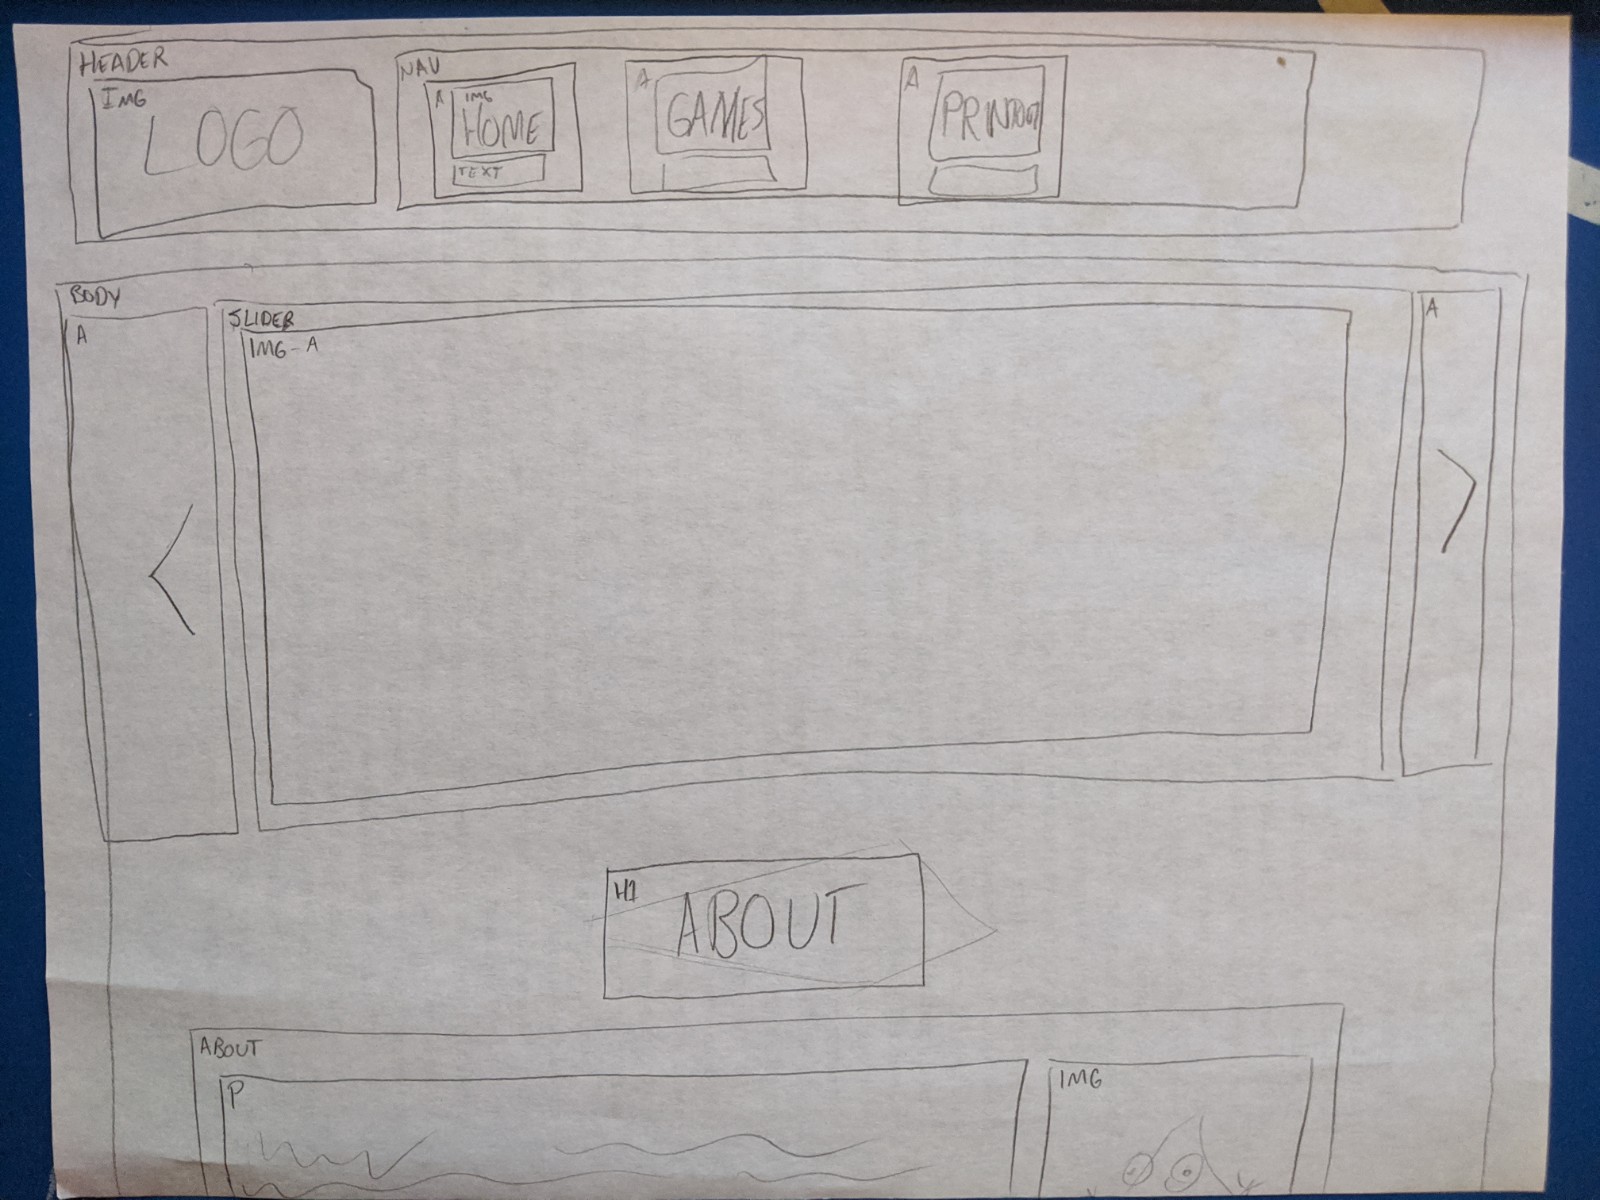 HEADER
IMG
LOGO
NAV
A
IMG
HOME
TEXT
A
GAMES
A
BODY
A
SLIDER
IMG-A
A
H1
ABOUT
ABOUT
P
IMG